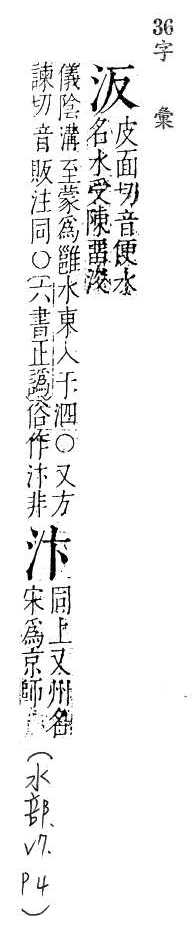 36
字彙
汳
皮面切音便水
名水受陳畱浚
儀陰溝至蒙爲雝水東入于泗〇又方
諫切音販注同〇六書正譌俗作汴非
汴
同上又州名
宋爲京師
(水部、V7.P4)